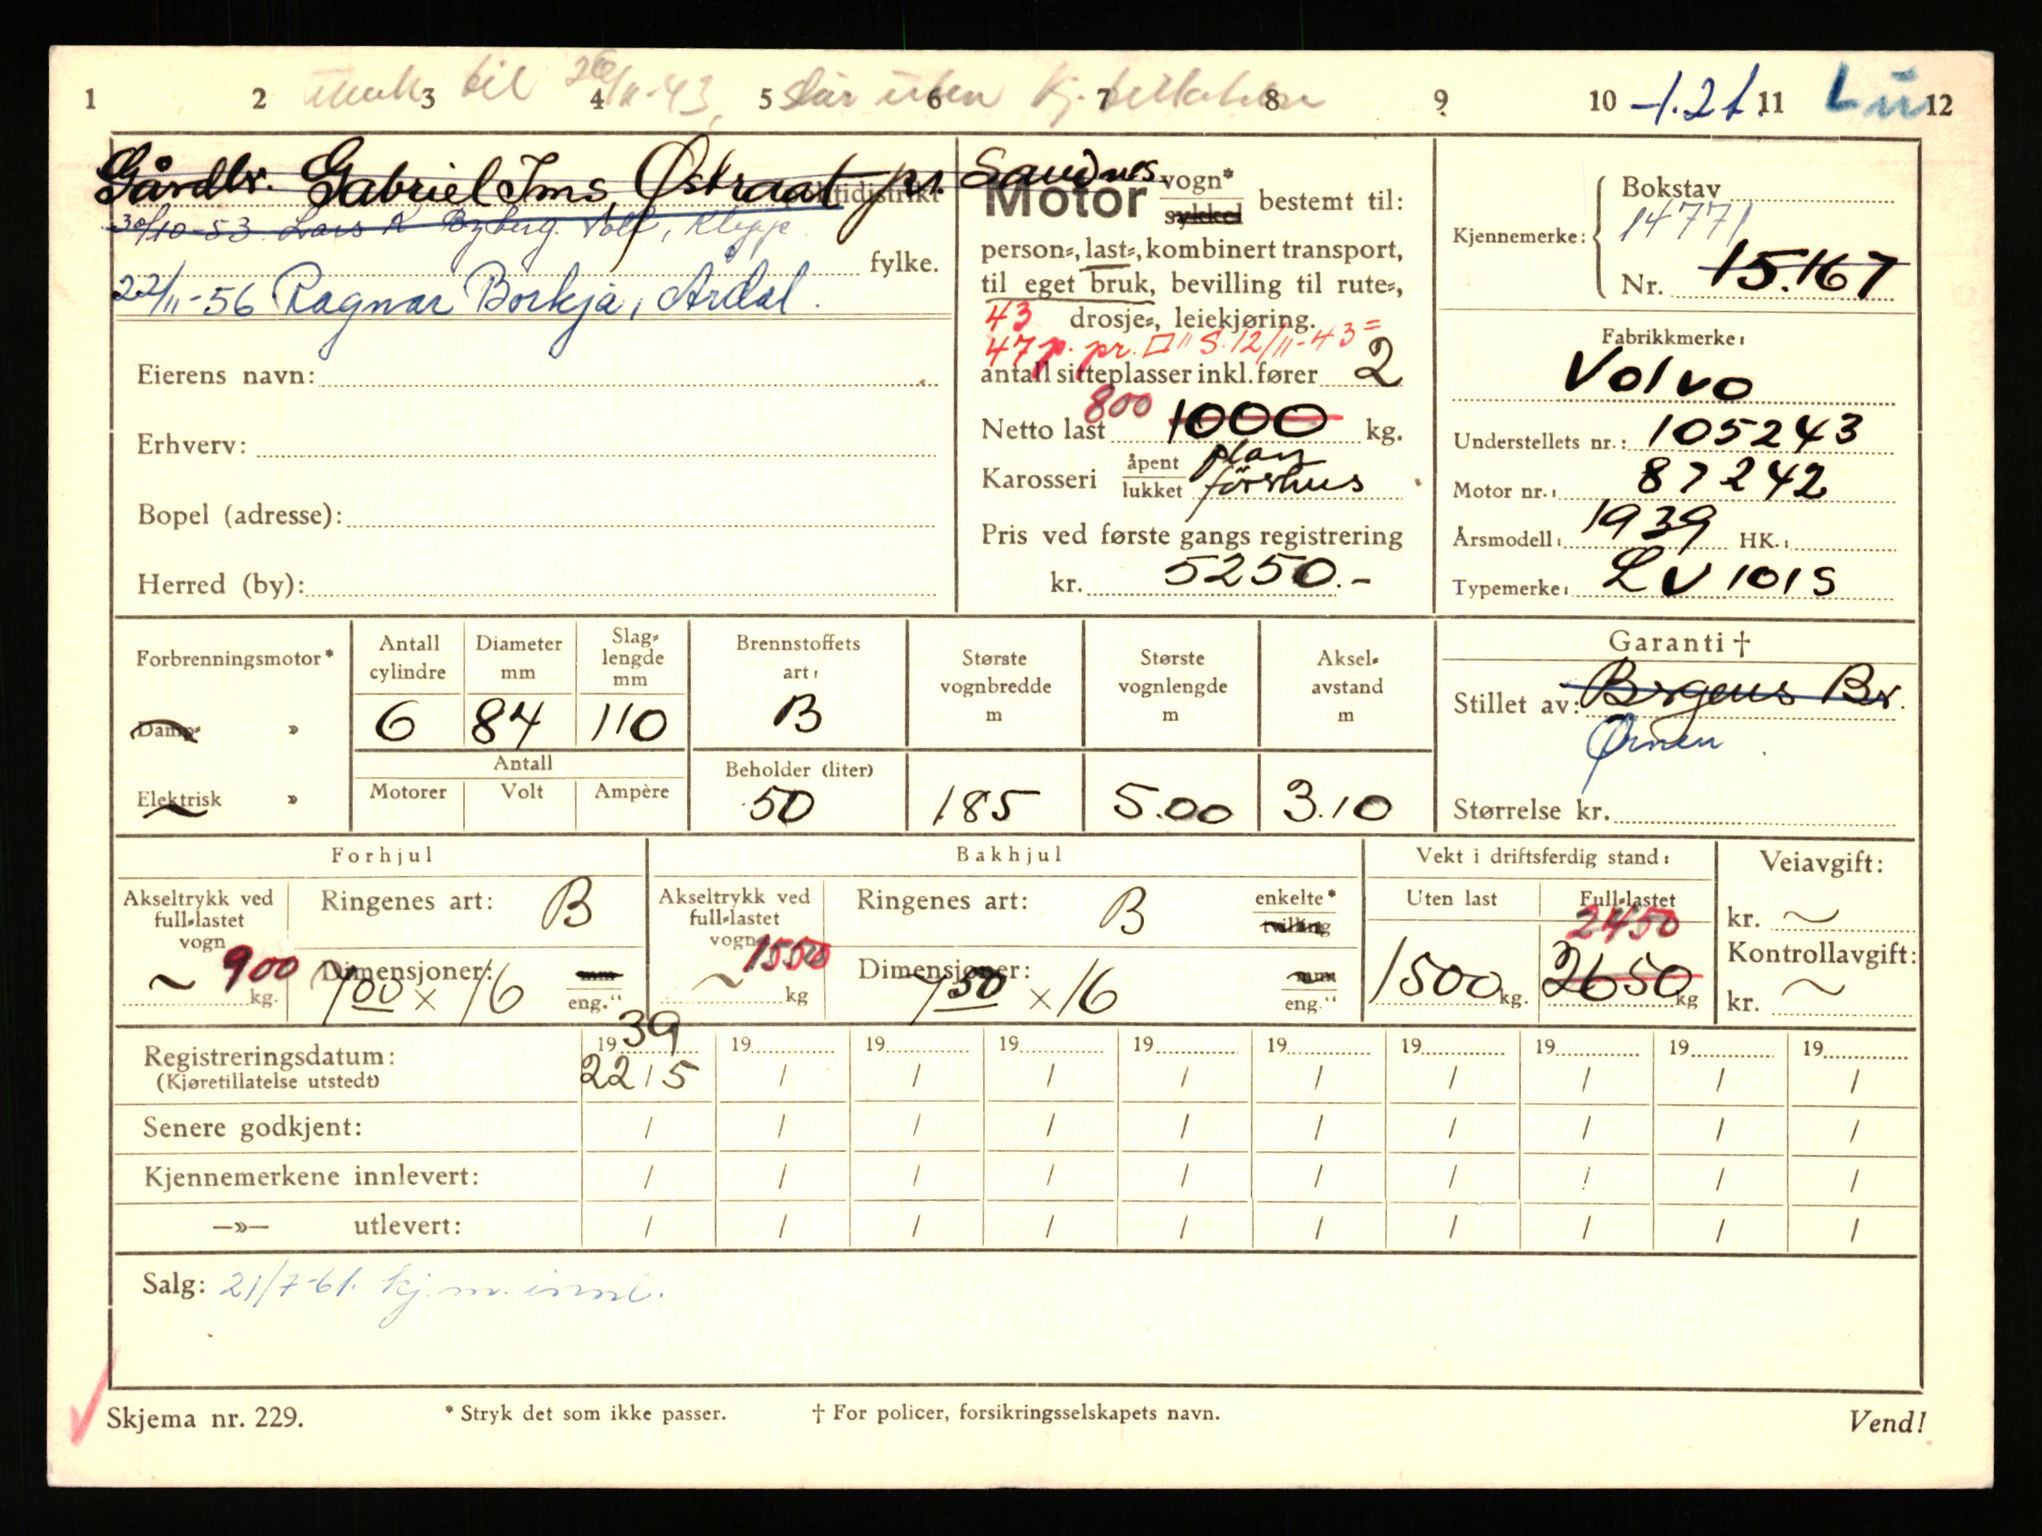 1 2 3 4 5 6 7 8 9 10 11 12
til 26/11-43, uten
-1.21. Lü
Gårdbr. Gabriel Ims, Østraat pr. Sandnes.
30/10-53 Lars K Byberg. Voll, Klepp
fylke.
22/11-56 Ragnar Borkja, Årdal.
Eierens navn:
Erhverv:
Bopel (adresse):
Herred (by):
Motor vogn* sykkel bestemt til:
person-, last-, kombinert transport,
til eget bruk, bevilling til rute-,
43 drosje-, leiekjøring.
47 p. pr. □" S. 12/11-43 =
antall sitteplasser inkl. fører 2
800
Netto last 1000 kg.
Karosseri åpent lukket plan førerhus
Pris ved første gangs registrering
kr. 5250.-
Bokstav
14771
Kjennemerke:
Nr. 15.167
Fabrikkmerke:
Volvo
Understellets nr.: 105243
Motor nr.: 87242
Årsmodell: 1939 HK.:
Typemerke: LV 101S
Forbrenningsmotor*
Damp- »
Elektrisk »
Antall cylindre 6
Diameter mm 84
Slag-lengde mm 110
Antall
Motorer Volt Ampère
Brennstoffets art: B
Beholder (liter) 50
Største vognbredde m 185
Største vognlengde m 5.00
Aksel-avstand m 3.10
Garanti †
Stillet av: Bergens Br.
Ørnen
Størrelse kr.
Forhjul
Akseltrykk ved full-lastet vogn ~ 900 kg.
Ringenes art: B
Dimensjoner: 700 x 16 mm eng."
Bakhjul
Akseltrykk ved full-lastet vogn ~ 1550 kg
Ringenes art: B enkelte* tvilling
Dimensjoner: 750 x 16 mm eng."
Vekt i driftsferdig stand:
Uten last 1500 kg.
Full-lastet 2450
2650 kg
Veiavgift:
kr. ~
Kontrollavgift:
kr. ~
1939 19 19 19 19 19 19 19 19 19
Registreringsdatum: 22/5 / / / / / / / / /
(Kjøretillatelse utstedt)
Senere godkjent: / / / / / / / / / /
Kjennemerkene innlevert: / / / / / / / / / /
—»— utlevert: / / / / / / / / / /
Salg: 21/7-61. kj.m. innl.
Skjema nr. 229.
* Stryk det som ikke passer.
† For policer, forsikringsselskapets navn.
Vend!